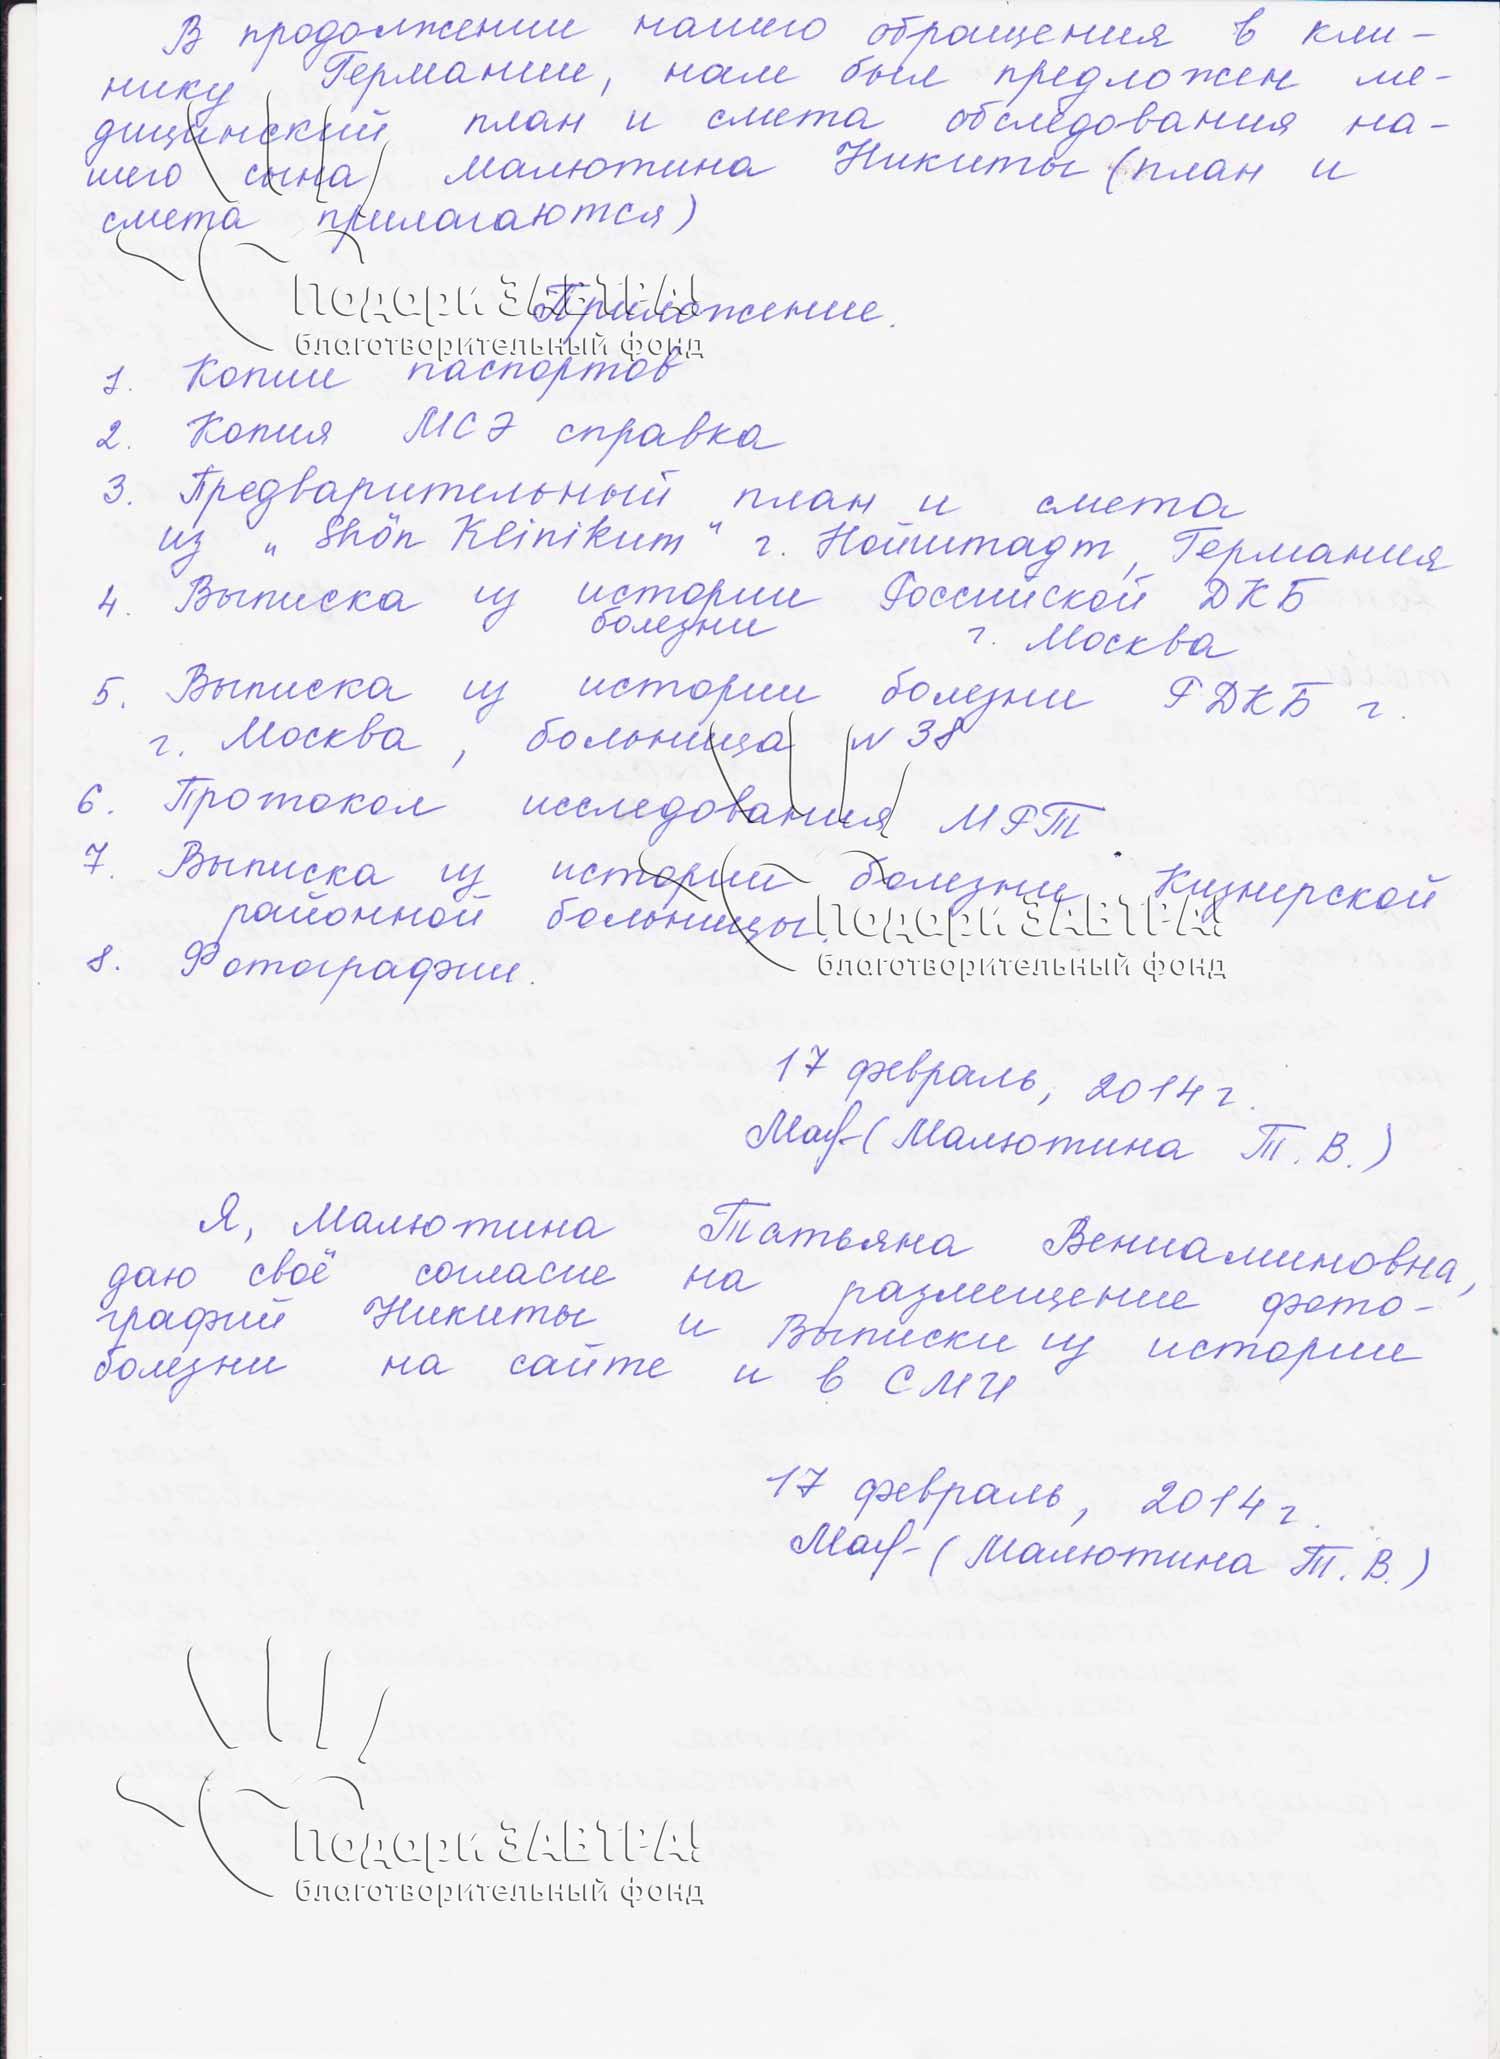 В продолжении нашего обращения в кли-
нику Германии, нам был предложен ме-
дицинский план и смета обследования на-
шего сына Малютина Никиты (план и
смета прилагаются)
Подари ЗАВТРА!
благотворительный фонд
Приложение.
1. Копии паспортов
2. Копия МСЭ справка
3. Предварительный план и смета
из „Shön Klinikum" г. Нойштадт, Германия
4. Выписка из истории Российской ДКБ
болезни г. Москва
5. Выписка из истории болезни РДКБ г.
г. Москва, больница N 38
6. Протокол исследования МРТ
7. Выписка из истории болезни Кизнерской
районной больницы.
Подари ЗАВТРА!
благотворительный фонд
8. Фотографии.
17 февраль, 2014 г.
(Малютина Т. В.)
Я, Малютина Татьяна Вениаминовна,
даю своё согласие на размещение фото-
графий Никиты и Выписки из истории
болезни на сайте и в СМИ
17 февраль, 2014 г.
(Малютина Т. В.)
Подари ЗАВТРА!
благотворительный фонд